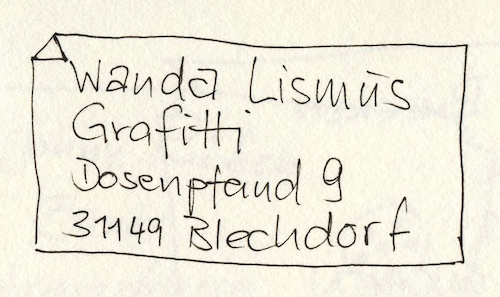 Wanda Lismus
Grafitti
Dosenpfand 9
31149 Blechdorf